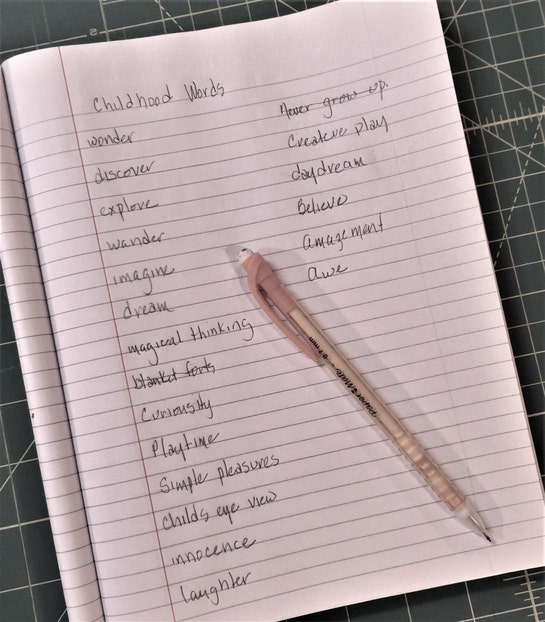 Childhood Words
wonder
discover
explore
wander
imagine
dream
magical thinking
blanket forts
Curiousity
Playtime
Simple pleasures
childs eye view
innocence
laughter
Never grow up.
Creative play
daydream
Believe
amazement
awe
0.7 mm